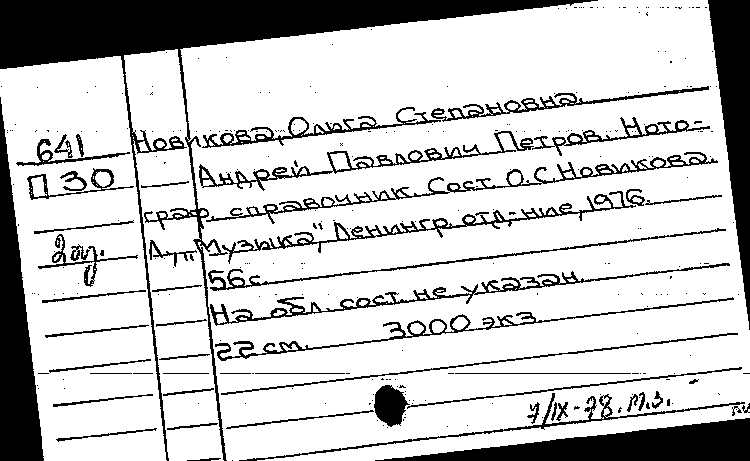 641 Новикова, Ольга Степановна.
П 30 Андрей Павлович Петров. Ното-
граф. справочник. Сост. О.С. Новикова.
Л., "Музыка", Ленингр. отд-ние, 1976.
56 с.
На обл. сост. не указан.
22 см. 3000 экз.
7/IX-78. М.З.